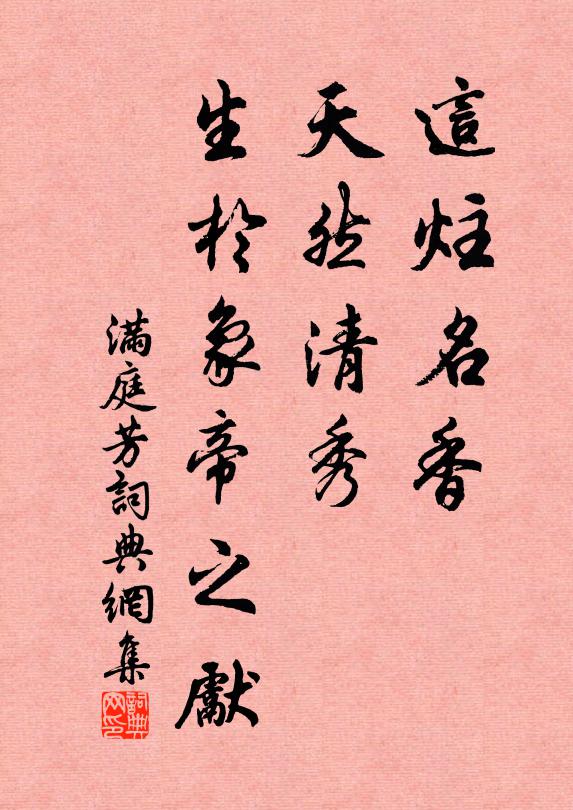 這炷名香
天然清秀
生於象帝之獻
滿庭芳詞典網集
詞典网印